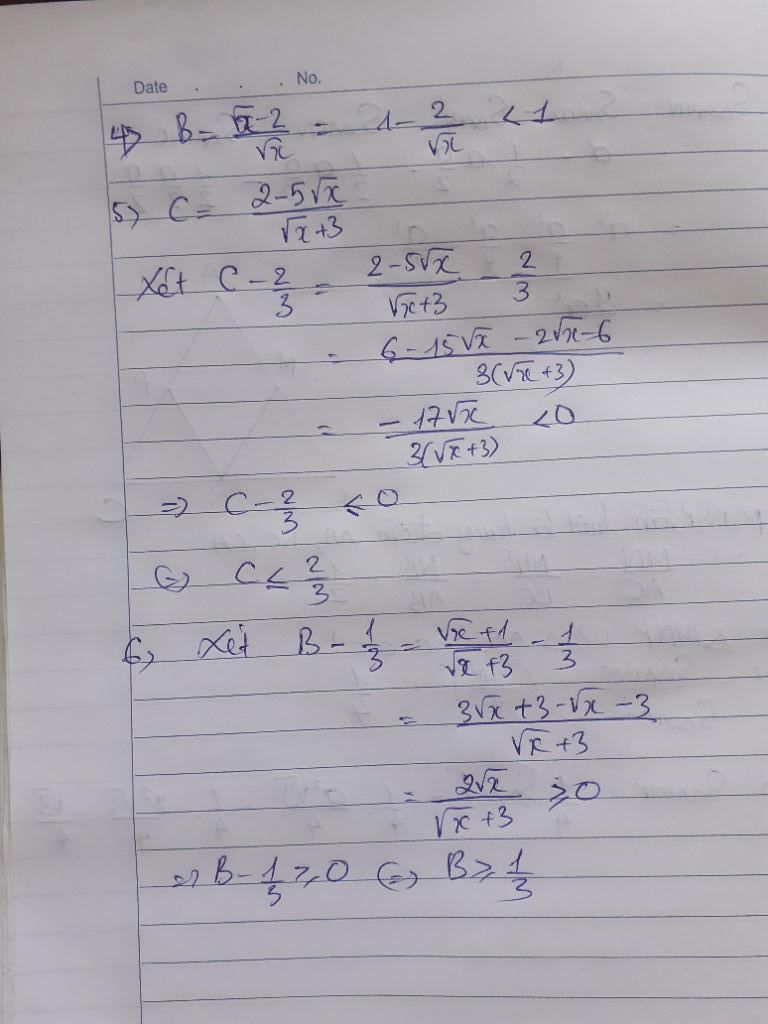 Date . . . No.
4) B = (√x - 2)/√x = 1 - 2/√x < 1
5) C = (2 - 5√x)/(√x + 3)
Xét C - 2/3 = (2 - 5√x)/(√x + 3) - 2/3
= (6 - 15√x - 2√x - 6)/(3(√x + 3))
= (-17√x)/(3(√x + 3)) < 0
=> C - 2/3 ≤ 0
(=) C ≤ 2/3
6, Xét B - 1/3 = (√x + 1)/(√x + 3) - 1/3
= (3√x + 3 - √x - 3)/(√x + 3)
= 2√x/(√x + 3) ≥ 0
=> B - 1/3 ≥ 0 (=) B ≥ 1/3